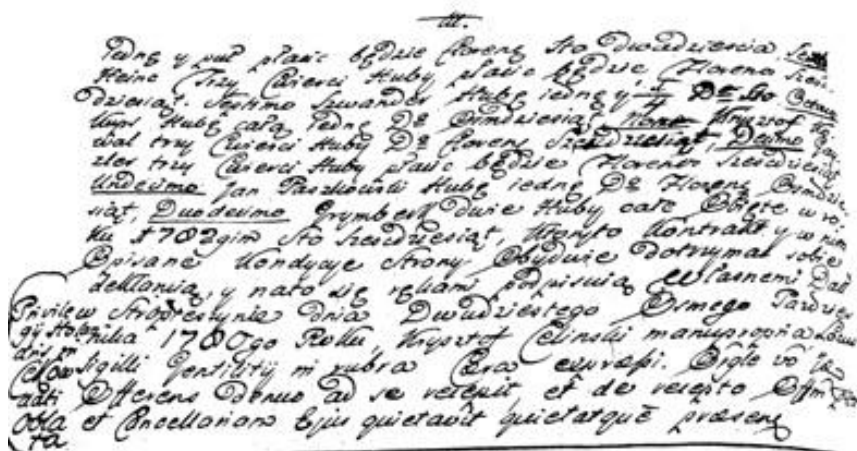 III.
Jedną y puł płacić będzie Floreng Sto Dwudziescia,
Heinc Trzy Cwierci Huby płacić będzie Floreno Szesc
dziesiąt. Septimo Szwander Hubę iedną y D° Sto Octavo
Kuns Hubę całą Jedną D° Osmdziesiąt, Nono Krysztof
wal trzy Cwierci Huby D° Floreng Szescdziesiąt, Decimo Jan
zler trzy Cwierci Huby płacić będzie Florenow Szescdziesiąt
Undecimo Jan Paszkowski Hubę iedną D° Floreng Osmdzie-
siąt, Duodecimo Grymberk dwie Huby całe Obięte w ro-
ku 1782gim Sto Szescdziesiąt, Kontrakt y w nim
Opisane Kondycye Strony Obydwie dotrzymać sobie
deklaruią, y nato się rękami podpisuią Własnemi Datt
w dnia Dwudziestego Osmego Pazdzier
nika 1780go Roku, Krysztof Celinski manupropria Locus
Sigilli Gentilitij in rubra Cera expressi. Origle vo
Offerens denuo ad se recepit et de recepto Offm
et Cancellariam Ejus quietavit quietatque præsens
Privile
gij
Oblata